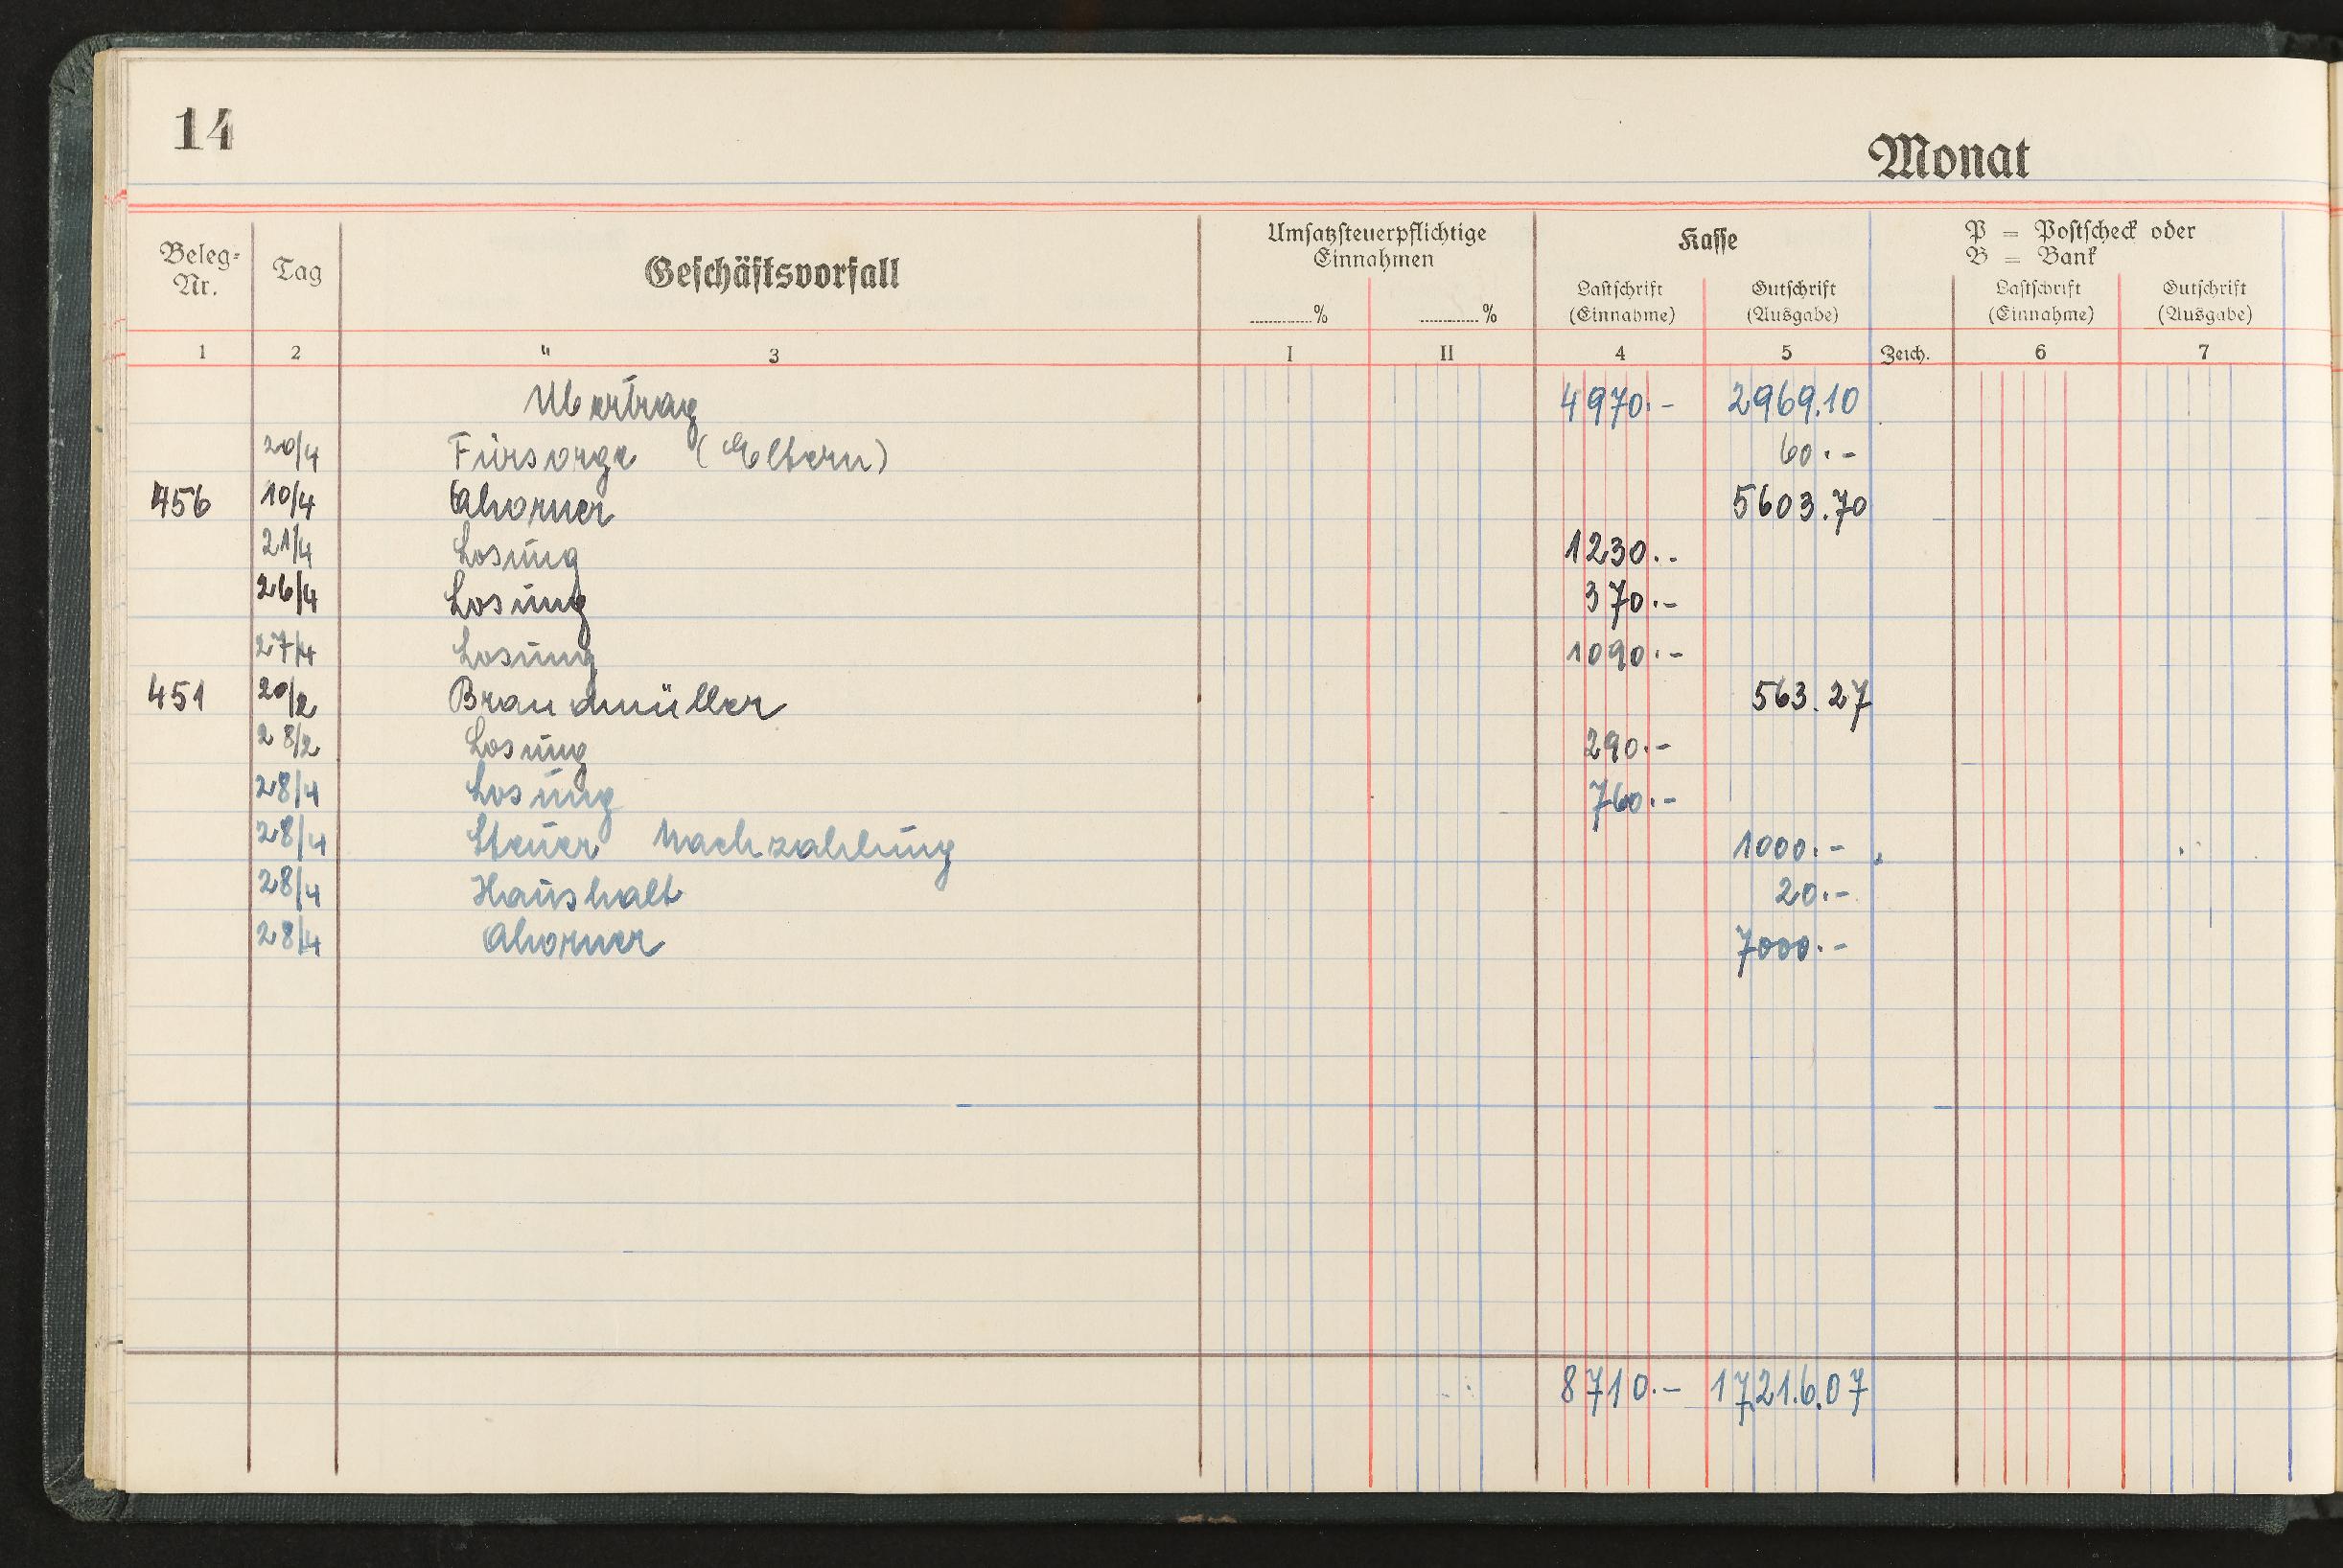 14
Monat
Beleg-Nr. Tag Geschäftsvorfall Umsatzsteuerpflichtige Einnahmen Kasse P = Postscheck oder B = Bank
%  % Lastschrift (Einnahme) Gutschrift (Ausgabe) Lastschrift (Einnahme) Gutschrift (Ausgabe)
1 2 3 I II 4 5 Zeich. 6 7
Übertrag 4970.- 2969.10
20/4 Fürsorge (Eltern) 60.-
456 10/4 Ahorner 5603.70
21/4 Losung 1230.-
26/4 Losung 370.-
27/4 Losung 1090.-
451 20/2 Brandmüller 563.27
28/2 Losung 290.-
28/4 Losung 760.-
28/4 Steuer Nachzahlung 1000.-
28/4 Haushalt 20.-
28/4 Ahorner 7000.-
8710.- 17.21.6.07